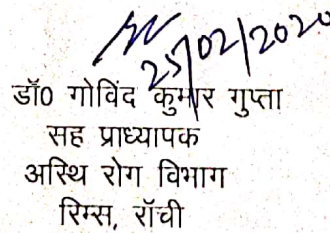 25/02/2020
डॉ0 गोविंद कुमार गुप्ता
सह प्राध्यापक
अस्थि रोग विभाग
रिम्स, रॉची